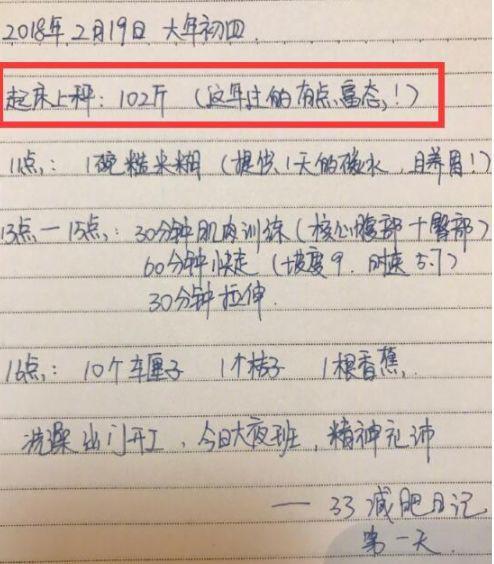 2018年2月19日 大年初四
起床上秤：102斤（这年过的有点富态！）
11点：1碗糙米糊（提供1天的碳水，且养胃！）
13点－15点：30分钟肌肉训练（核心腹部＋臀部）
60分钟快走（坡度9．时速5.7）
30分钟拉伸．
16点：10个车厘子 1个桔子 1根香蕉．
洗澡出门开工，今日大夜班，精神充沛
— 33减肥日记
第一天．